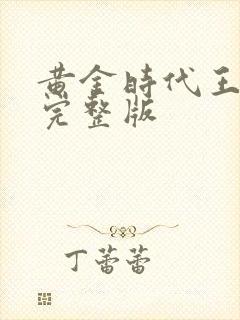 黄金時代王
完整版
丁蕾蕾